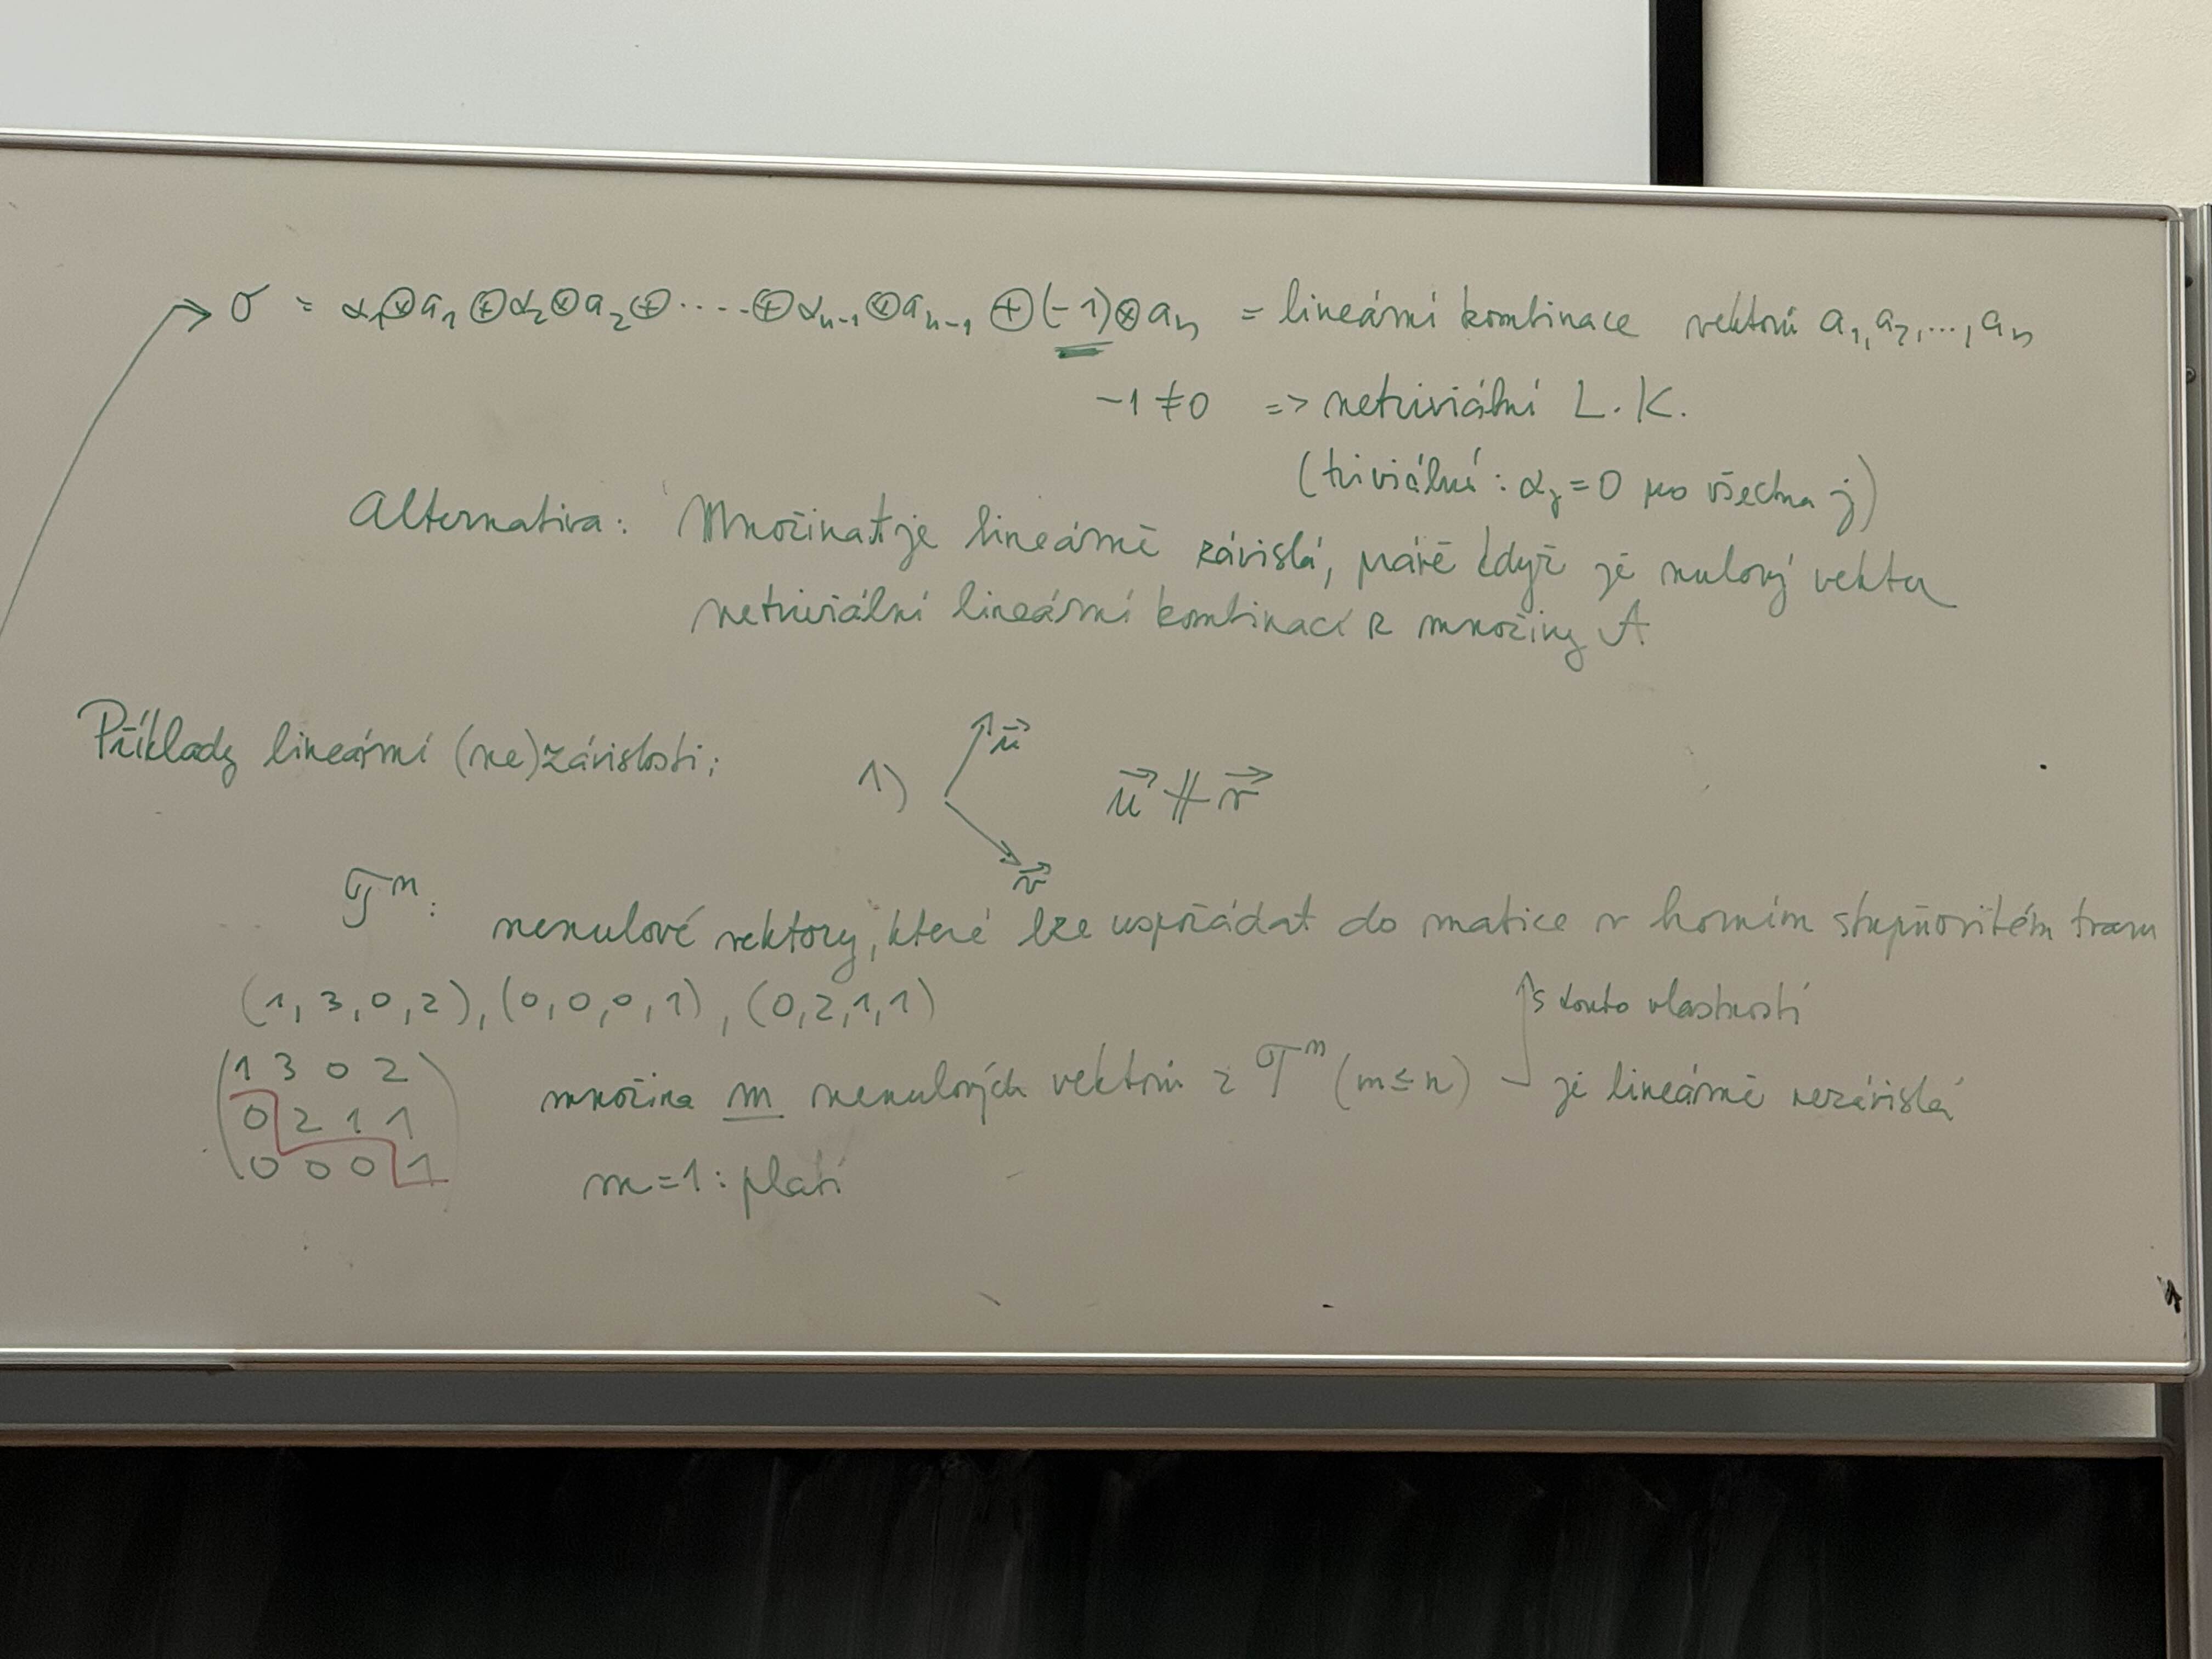 σ = α₁⊗a₁ ⊕ α₂⊗a₂ ⊕ ····⊕ αₙ₋₁ ⊗aₙ₋₁ ⊕ (-1)⊗aₙ = lineární kombinace vektorů a₁, a₂, ..., aₙ
-1 ≠ 0 => netriviální L.K.
(triviální: αⱼ = 0 pro všechna j)
Alternativa: Množina A je lineárně závislá, právě když je nulový vektor
netriviální lineární kombinací z množiny A
Příklady lineární (ne)závislosti:
1) u⃗ v⃗ u⃗ ∦ v⃗
Tⁿ: nenulové vektory, které lze uspořádat do matice v horním stupňovitém tvaru
(1, 3, 0, 2), (0, 0, 0, 1), (0, 2, 1, 1)
s touto vlastností
(1 3 0 2
0 2 1 1
0 0 0 1)
množina m nenulových vektorů z Tⁿ (m ≤ n) je lineárně nezávislá
m = 1: platí